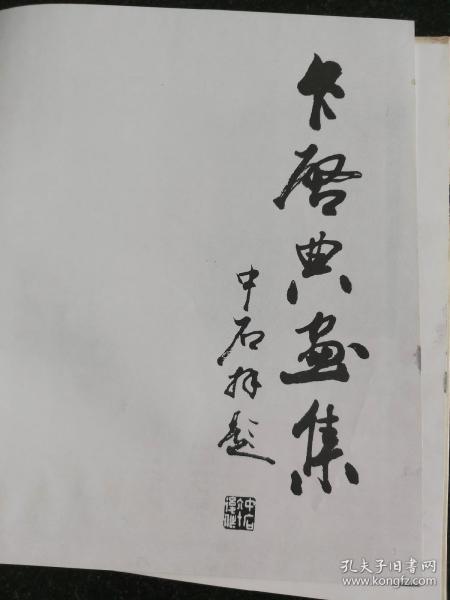 乍启典画集
中石拜题
孔夫子旧书网
www.kongfz.com